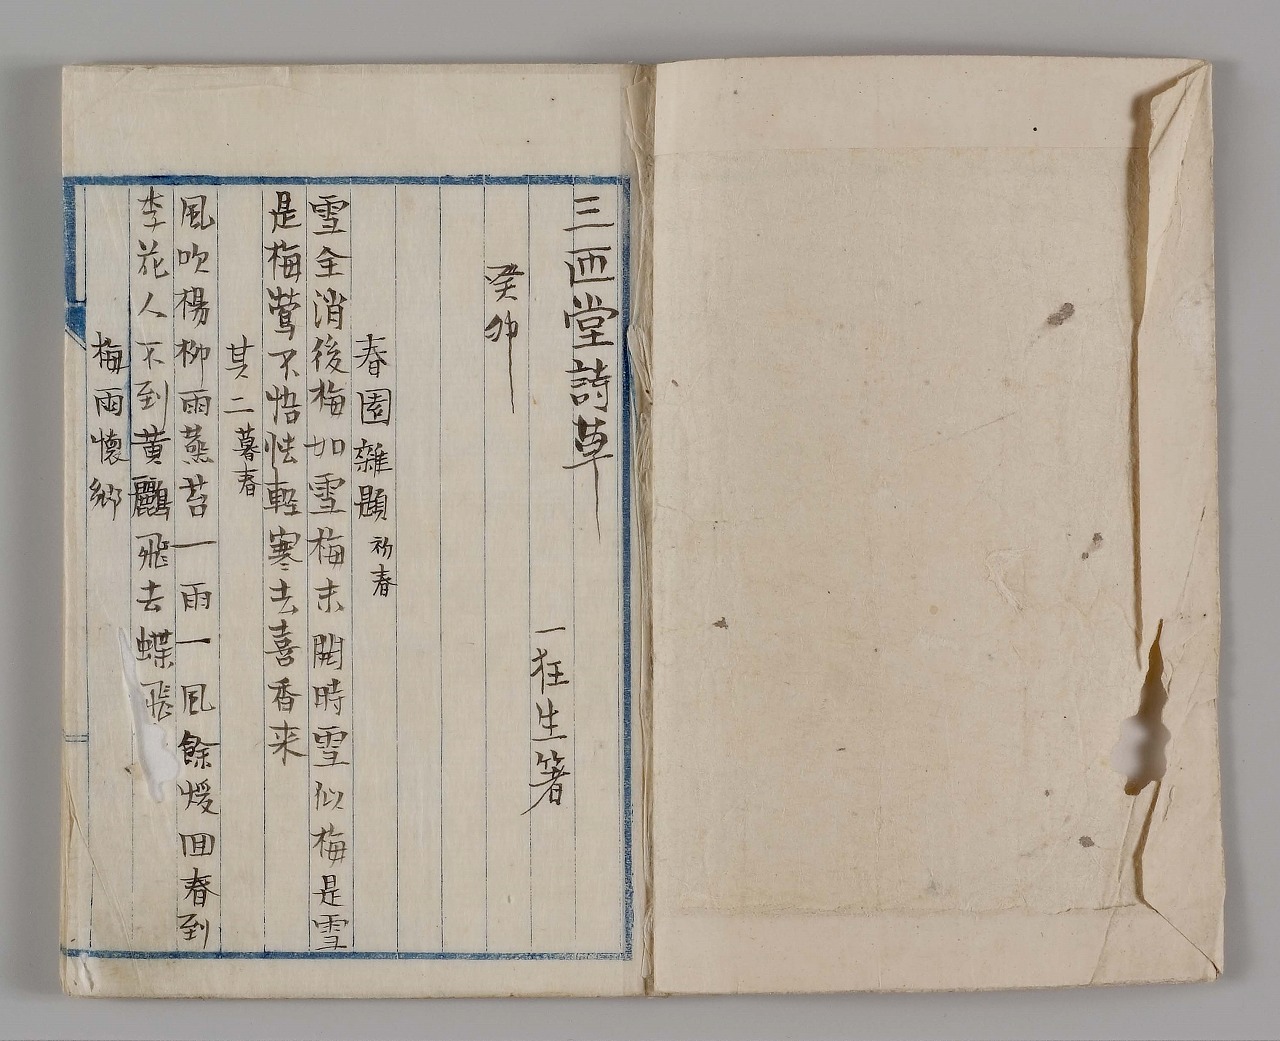 三匝堂詩草
一狂生箸
癸卯
春園雜題 初春
雪全消後梅如雪梅未開時雪似梅是雪
是梅鶯不悟怯輕寒去喜香来
其二 暮春
風吹楊柳雨蒸苔一雨一風餘煖回春到
李花人不到黄鸝飛去蝶飛
梅雨懷鄉